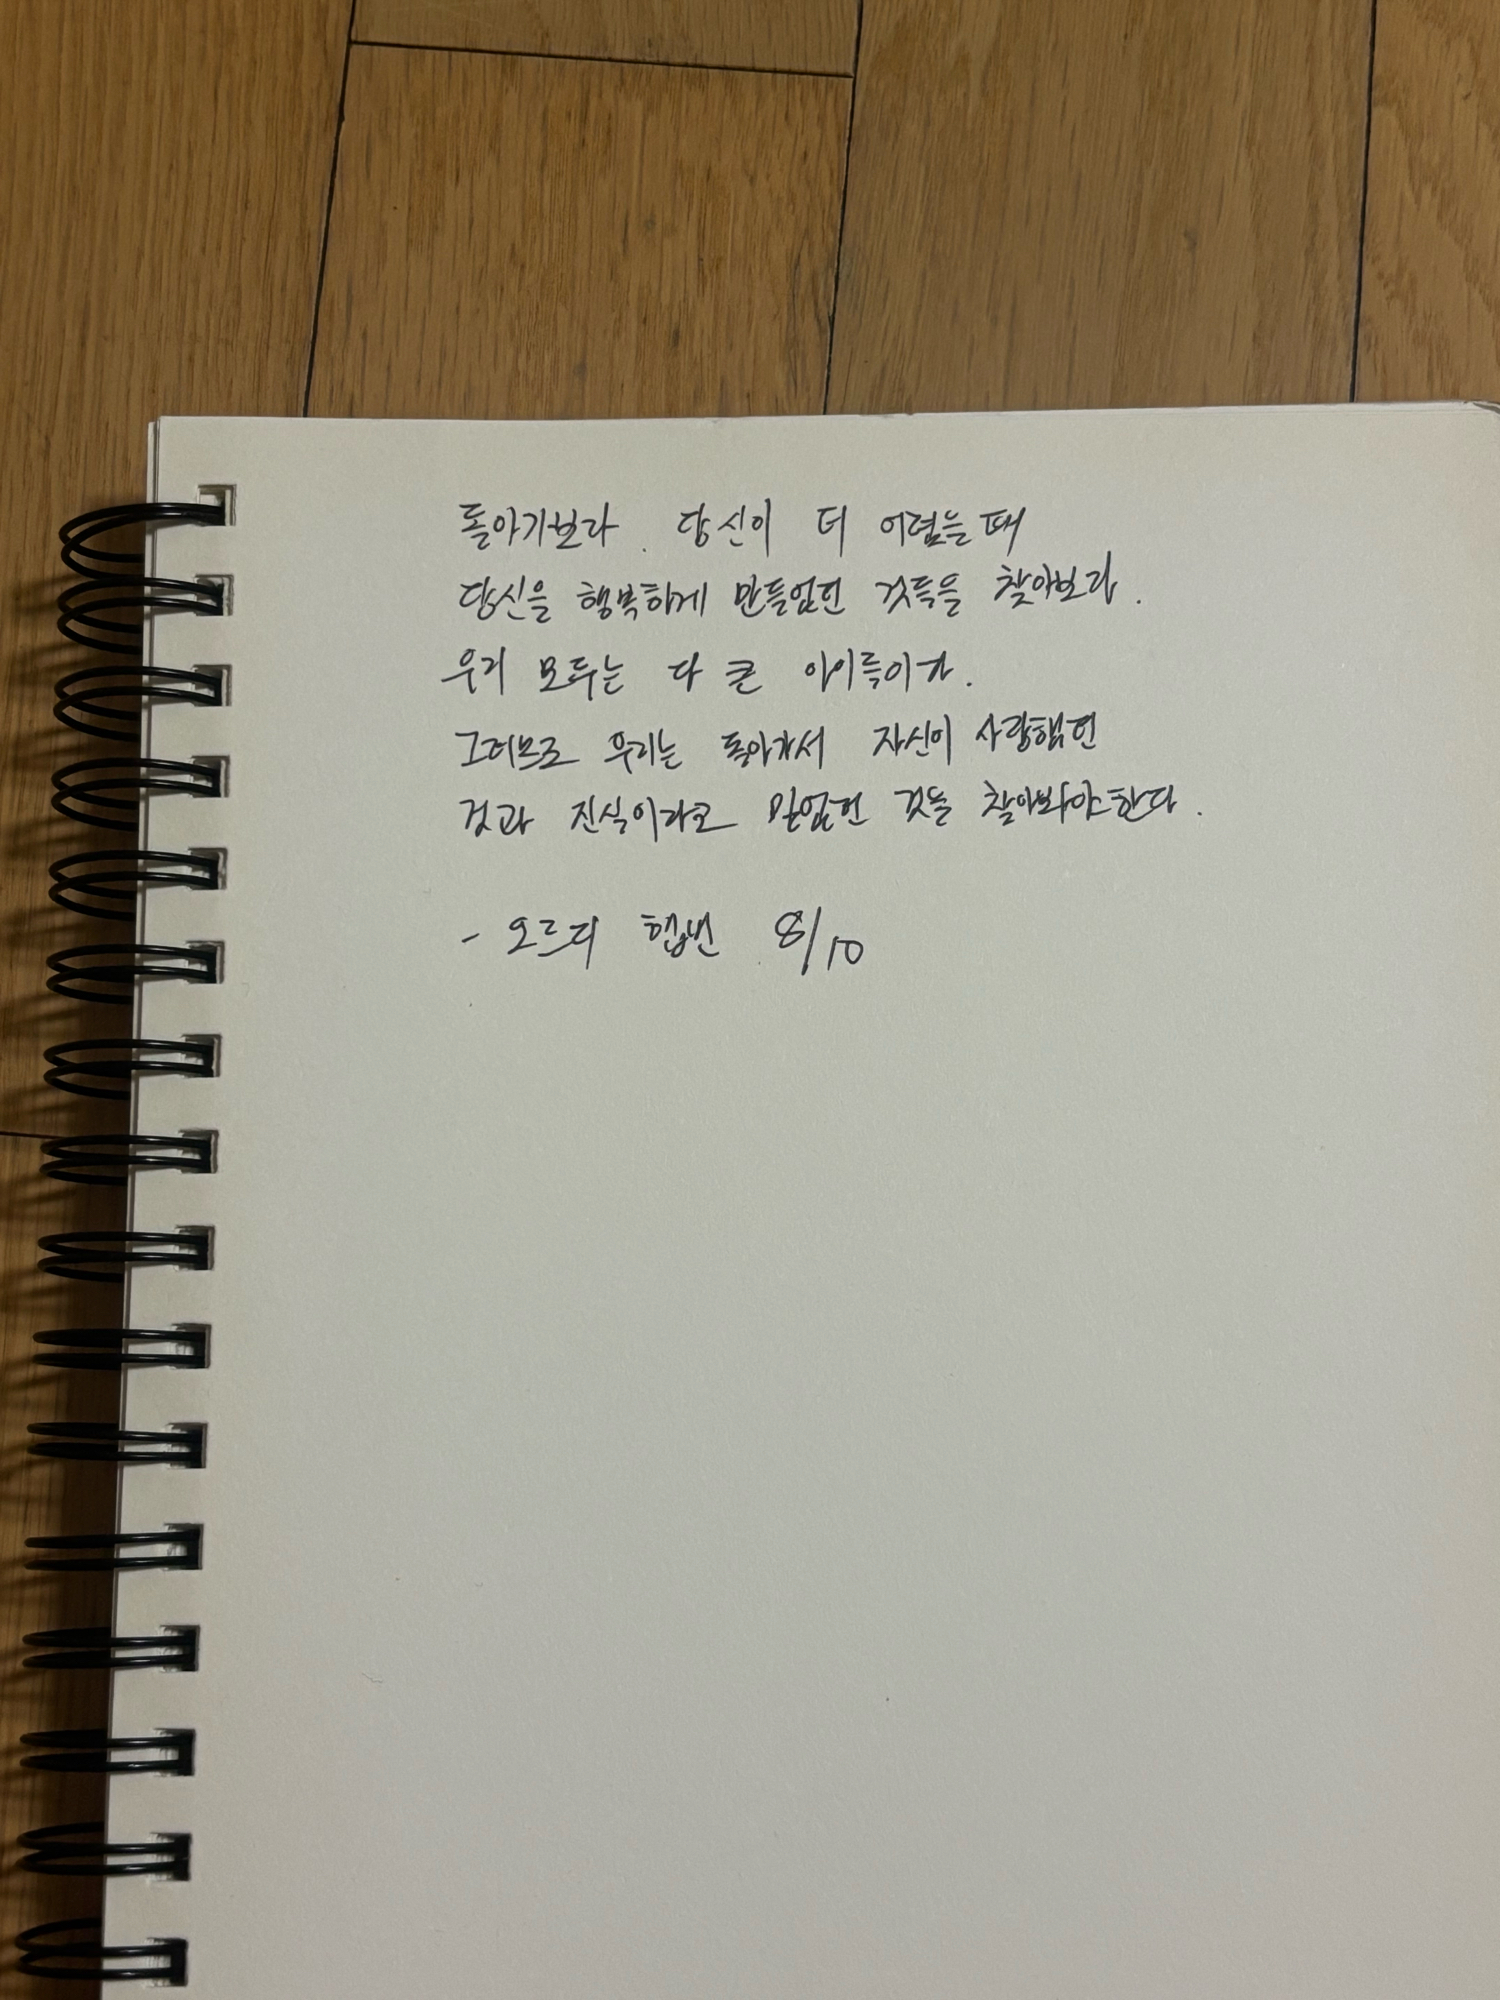 돌아가보라. 당신이 더 어렸을 때
당신을 행복하게 만들었던 것들을 찾아보라.
우리 모두는 다 큰 아이들이다.
그러므로 우리는 돌아가서 자신이 사랑했던
것과 진실이라고 믿었던 것을 찾아봐야한다.
- 오드리 헵번 8/10